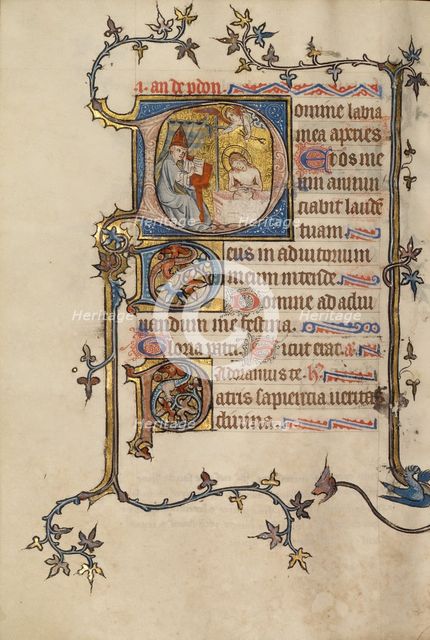 i. an de pdon
Domine labia
mea aperies
Et os me
um annun
ciabit laudē
tuam
Deus in adiutorium
meum intende
Domine ad adiu
uandum me festina.
Gloria patri. Sicut erat.
Adoramus te.
Patris sapiencia ueritas
diuina.
Heritage Heritage Heritage
Heritage Heritage Heritage